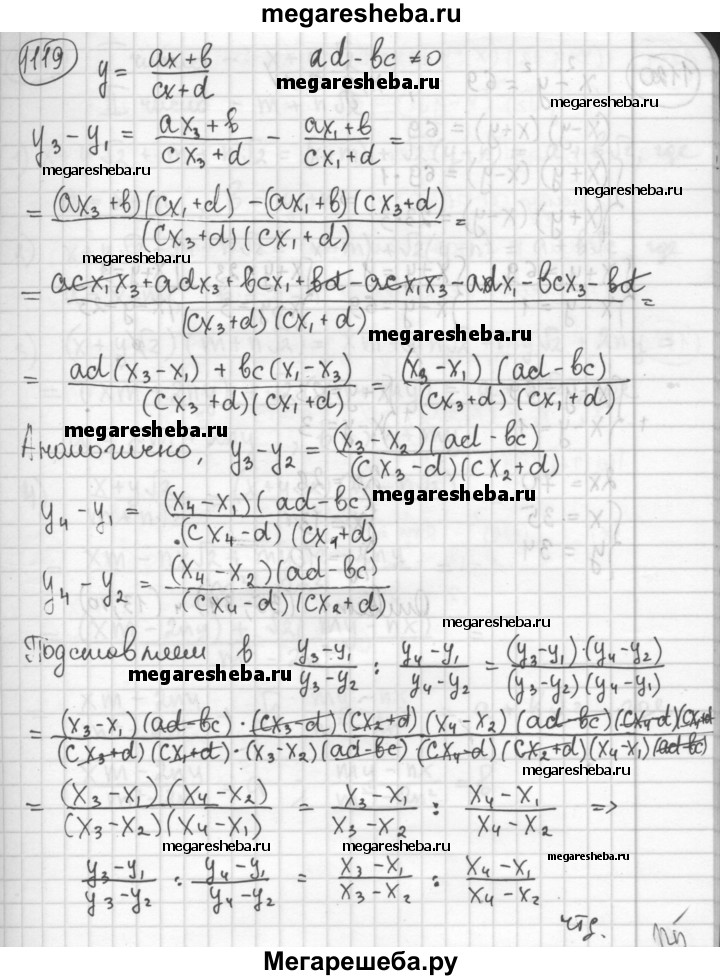 megaresheba.ru
1119 y = (ax+в)/(cx+d) ad-вc ≠0
megaresheba.ru
y₃-y₁ = (ax₃+в)/(cx₃+d) - (ax₁+в)/(cx₁+d) =
megaresheba.ru
megaresheba.ru
= ((ax₃+в)(cx₁+d) -(ax₁+в)(cx₃+d))/((cx₃+d)(cx₁+d)) =
= (acx₁x₃+adx₃+вcx₁+вd-acx₁x₃-adx₁-вcx₃-вd)/((cx₃+d)(cx₁+d)) =
megaresheba.ru
= (ad(x₃-x₁) + вc(x₁-x₃))/((cx₃+d)(cx₁+d)) = ((x₃-x₁)(ad-вc))/((cx₃+d)(cx₁+d))
megaresheba.ru
Аналогично, y₃-y₂ = ((x₃-x₂)(ad-вc))/((cx₃-d)(cx₂+d))
megaresheba.ru
y₄-y₁ = ((x₄-x₁)(ad-вc))/((cx₄-d)(cx₁+d))
y₄-y₂ = ((x₄-x₂)(ad-вc))/((cx₄-d)(cx₂+d))
megaresheba.ru
Подставляем в (y₃-y₁)/(y₃-y₂) : (y₄-y₁)/(y₄-y₂) = ((y₃-y₁)·(y₄-y₂))/((y₃-y₂)(y₄-y₁))
megaresheba.ru
= ((x₃-x₁)(ad-вc)·(cx₃-d)(cx₂+d)(x₄-x₂)(ad-вc)(cx₄-d)(cx₁+d))/((cx₃+d)(cx₁+d)·(x₃-x₂)(ad-вc)(cx₄-d)(cx₂+d)(x₄-x₁)(ad-вc))
megaresheba.ru
= ((x₃-x₁)(x₄-x₂))/((x₃-x₂)(x₄-x₁)) = (x₃-x₁)/(x₃-x₂) : (x₄-x₁)/(x₄-x₂) =>
megaresheba.ru
megaresheba.ru
megaresheba.ru
(y₃-y₁)/(y₃-y₂) : (y₄-y₁)/(y₄-y₂) = (x₃-x₁)/(x₃-x₂) : (x₄-x₁)/(x₄-x₂)
megaresheba.ru
чтд.
Мегарешеба.ру